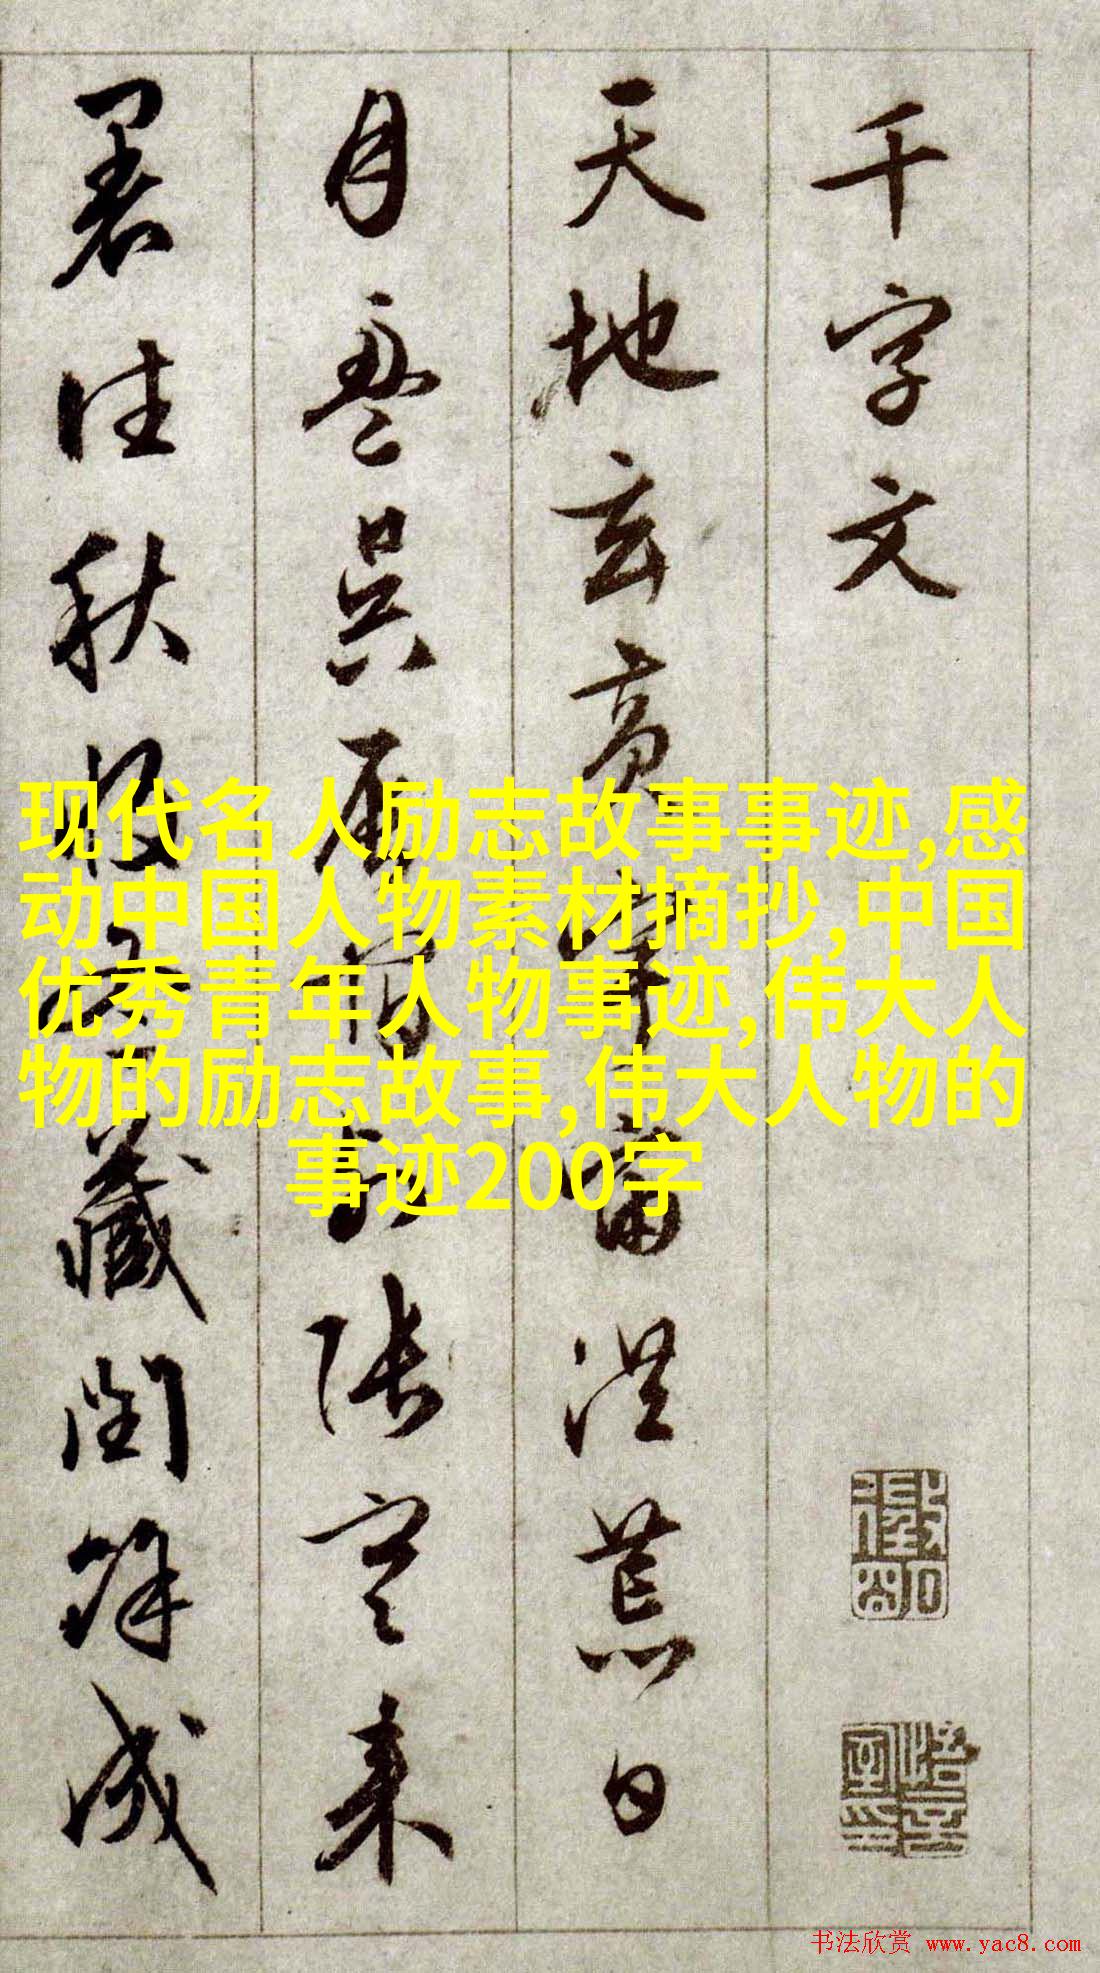 千字文
天地玄黄宇宙洪荒日
月盈昃辰宿列張寒来
暑往秋收冬藏閏餘成
现代名人励志故事事迹,感
动中国人物素材摘抄,中国
优秀青年人物事迹,伟大人
物的励志故事,伟大人物的
事迹200字
书法欣赏 www.yac8.com